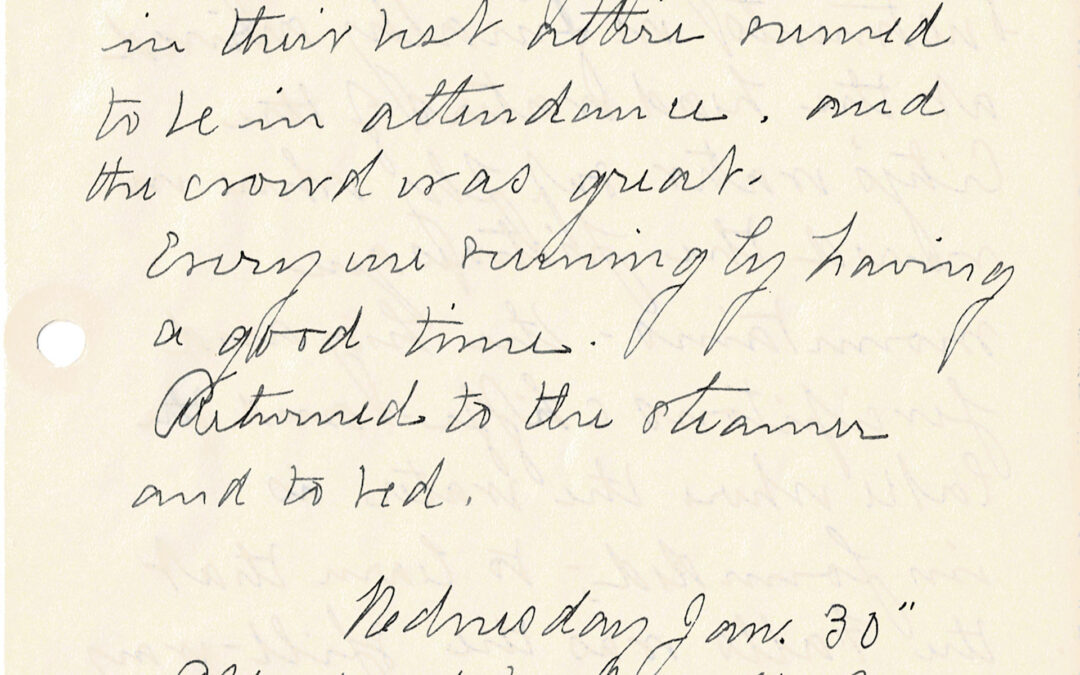 in their best attire seemed
to be in attendance. and
the crowd was great.
Everyone seemingly having
a good time.
Returned to the steamer
and to bed.
Wednesday Jan. 30"